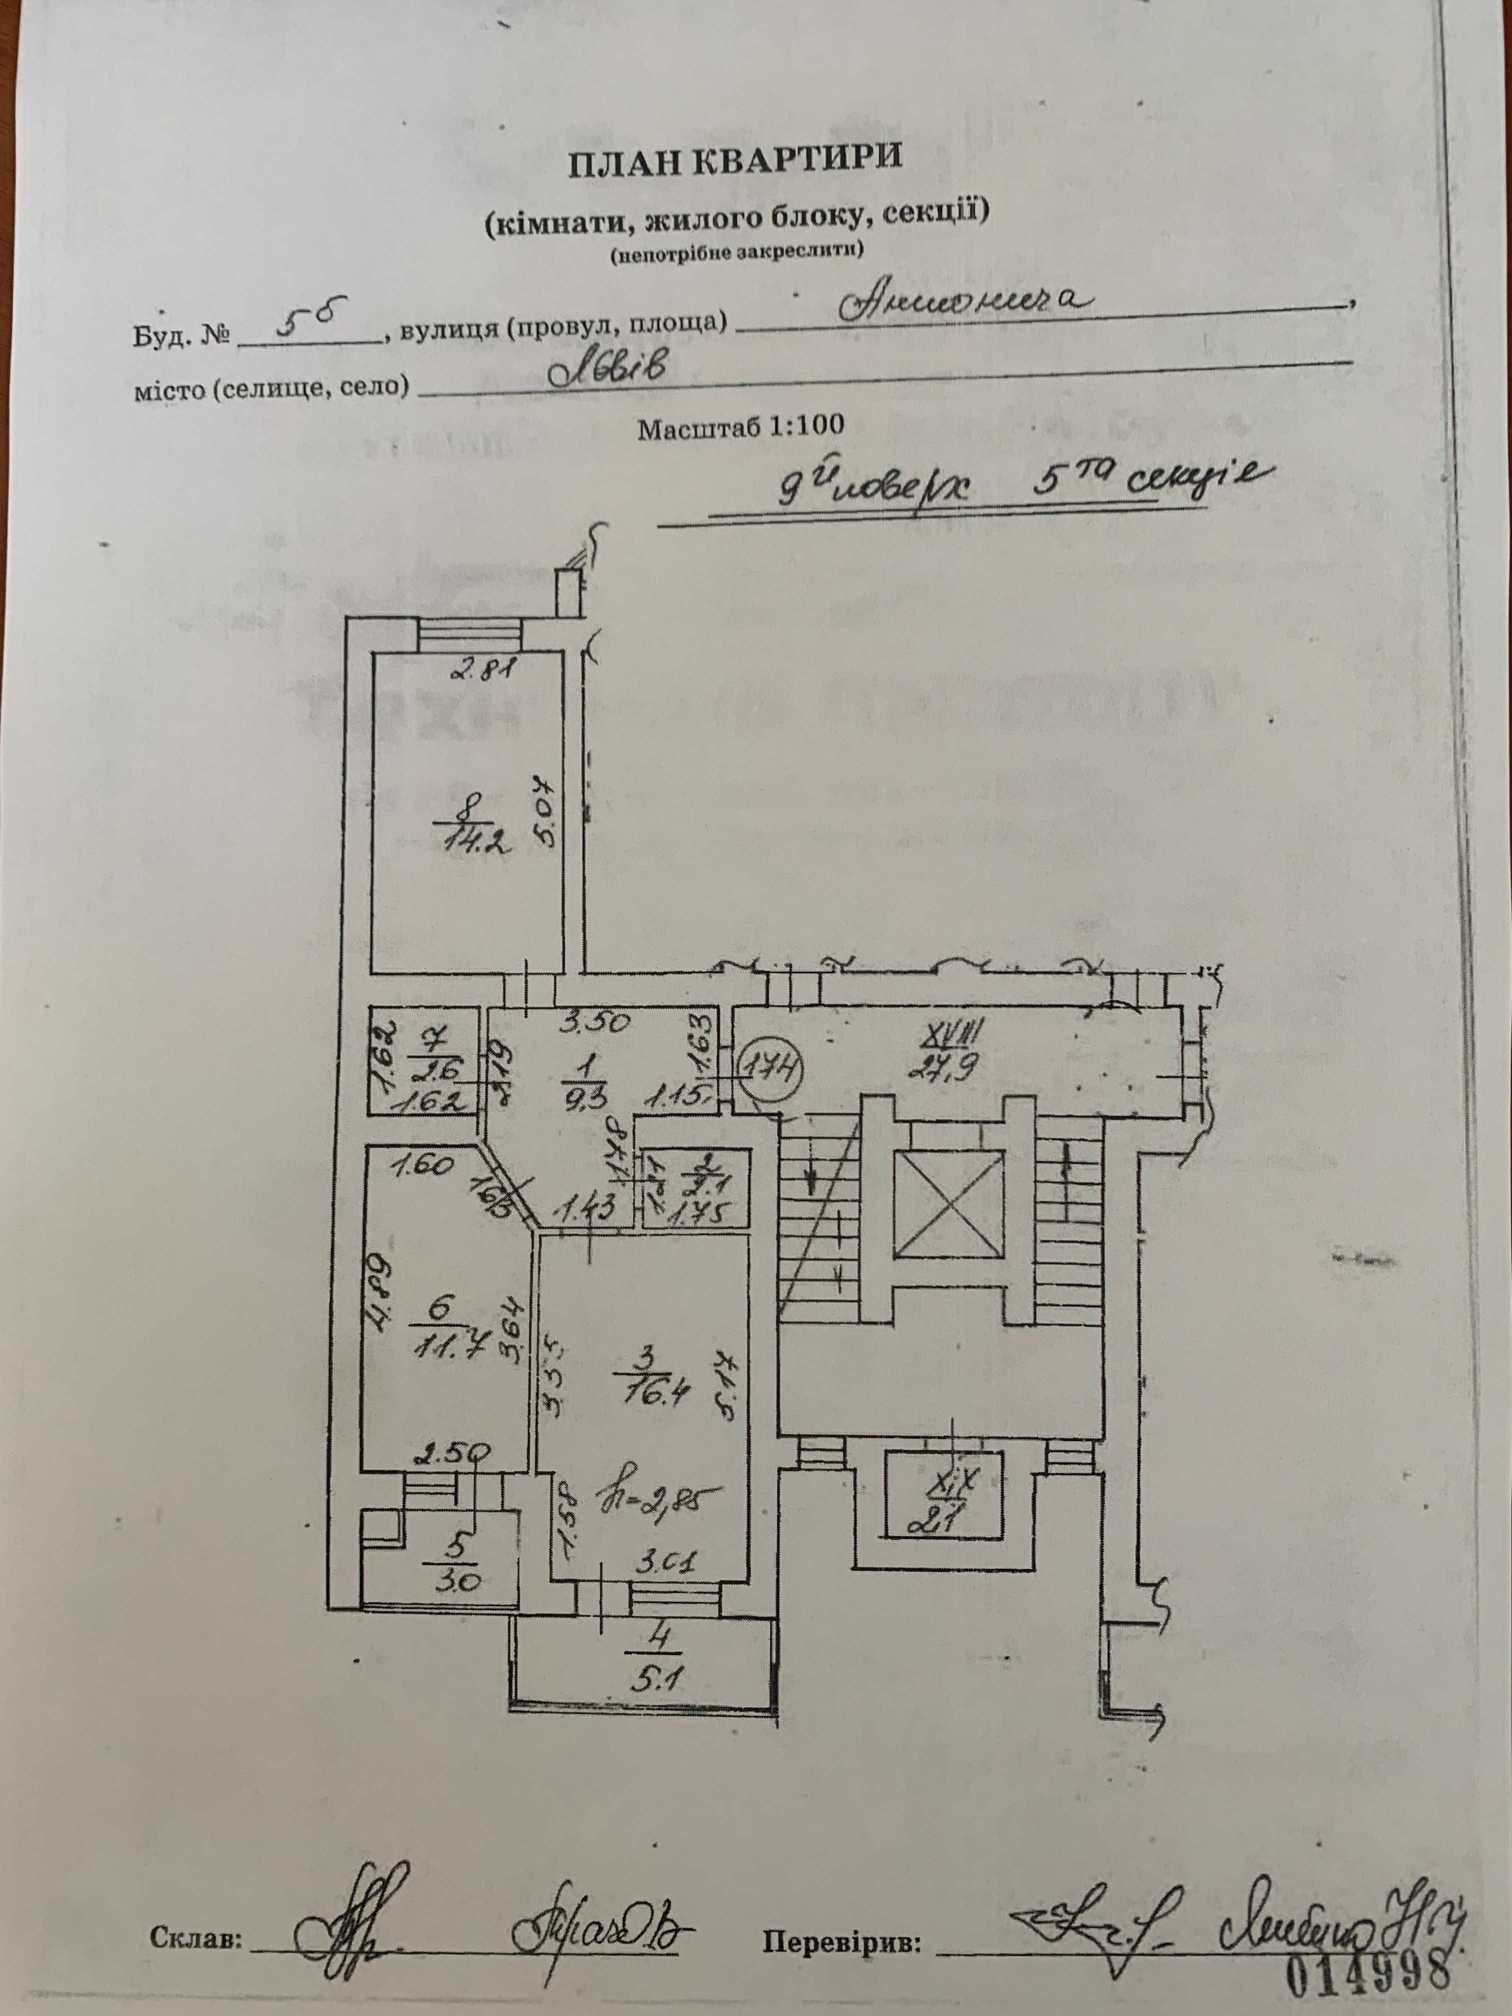 ПЛАН КВАРТИРИ
(кімнати, жилого блоку, секції)
(непотрібне закреслити)
Буд. № 5б, вулиця (провул, площа) Антонича,
місто (селище, село) Львів
Масштаб 1:100
9й поверх 5та секція
2.81
8
14.2
5.07
3.50
1.62
7
2.6
1.62
2.19
1
9.3
1.63
1.15
174
XVIII
27,9
1.60
1.63
1.78
1.43
1.21
2
2.1
1.75
4.89
6
11.7
3.64
3.55
3
16.4
5.17
2.50
1.58
h=2,85
3.01
XIX
2,1
5
3.0
4
5.1
Склав:
Перевірив:
014998